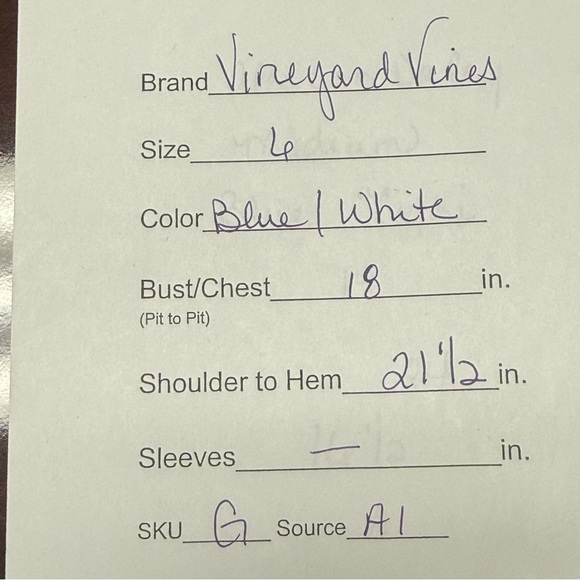 Brand Vineyard Vines
Size 4
Color Blue / White
Bust/Chest 18 in.
(Pit to Pit)
Shoulder to Hem 21 1/2 in.
Sleeves — in.
SKU G Source A1